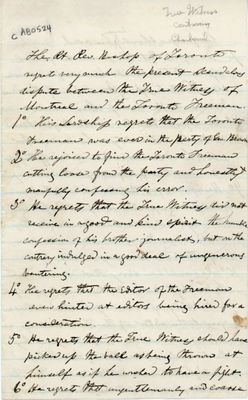 True Witness
C AB0524
The Rt. Rev. Bishop of Toronto
regrets very much the present scandalous
dispute between the True Witness of
Montreal and the Toronto Freeman
1° His Lordship regrets that the Toronto
Freeman was ever in the party of Geo Brown
2° He rejoiced to find the Toronto Freeman
cutting loose from the party and honestly &
manfully confessing his error.
3° He regrets that the True Witness did not
receive in a good and kind spirit the humble
confession of his brother journalist, but on the
contrary indulged in a good deal of ungenerous
bantering.
4° He regrets that the Editor of the Freeman
ever hinted at editors being hired for a
consideration
5° He regrets that the True Witness should have
picked up the ball as being thrown at
himself as if he wished to have a fight.
6° He regrets that ungentlemanly and coarse